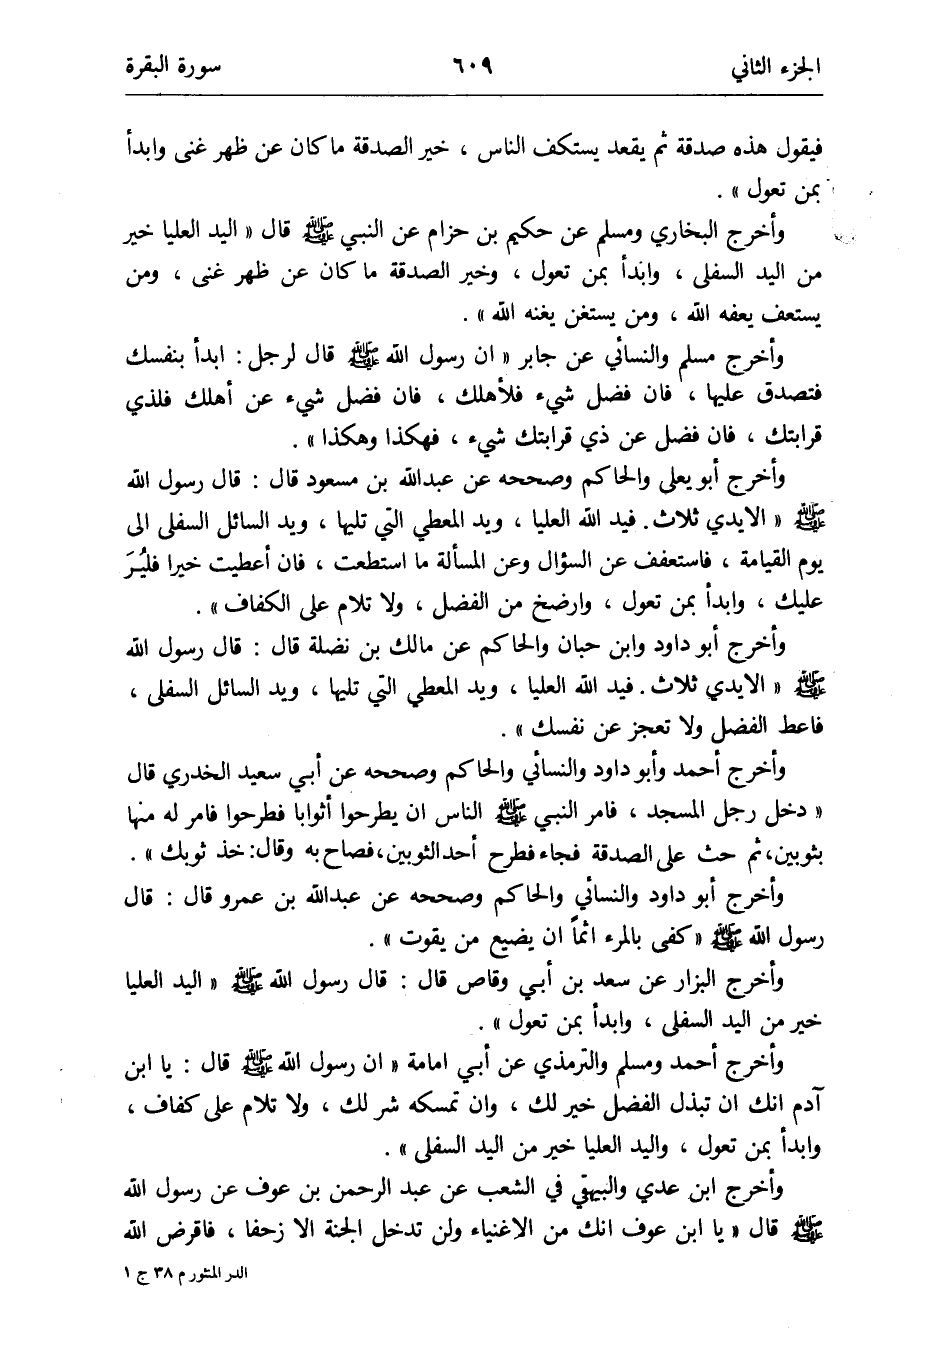 الجزء الثاني ٦٠٩ سورة البقرة
فيقول هذه صدقة ثم يقعد يستكف الناس ، خير الصدقة ما كان عن ظهر غنى وابدأ
بمن تعول » .
وأخرج البخاري ومسلم عن حكيم بن حزام عن النبي ﷺ قال « اليد العليا خير
من اليد السفلى ، وابدأ بمن تعول ، وخير الصدقة ما كان عن ظهر غنى ، ومن
يستعف يعفه الله ، ومن يستغن يغنه الله » .
وأخرج مسلم والنسائي عن جابر « ان رسول الله ﷺ قال لرجل : ابدأ بنفسك
فتصدق عليها ، فان فضل شيء فلأهلك ، فان فضل شيء عن أهلك فلذي
قرابتك ، فان فضل عن ذي قرابتك شيء ، فهكذا وهكذا » .
وأخرج أبو يعلى والحاكم وصححه عن عبدالله بن مسعود قال : قال رسول الله
ﷺ « الايدي ثلاث . فيد الله العليا ، ويد المعطي التي تليها ، ويد السائل السفلى الى
يوم القيامة ، فاستعفف عن السؤال وعن المسألة ما استطعت ، فان أعطيت خيرا فليُرَ
عليك ، وابدأ بمن تعول ، وارضخ من الفضل ، ولا تلام على الكفاف » .
وأخرج أبو داود وابن حبان والحاكم عن مالك بن نضلة قال : قال رسول الله
ﷺ « الايدي ثلاث . فيد الله العليا ، ويد المعطي التي تليها ، ويد السائل السفلى ،
فاعط الفضل ولا تعجز عن نفسك » .
وأخرج أحمد وأبو داود والنسائي والحاكم وصححه عن أبي سعيد الخدري قال
« دخل رجل المسجد ، فامر النبي ﷺ الناس ان يطرحوا أثوابا فطرحوا فامر له منها
بثوبين، ثم حث على الصدقة فجاء فطرح أحد الثوبين، فصاح به وقال: خذ ثوبك » .
وأخرج أبو داود والنسائي والحاكم وصححه عن عبدالله بن عمرو قال : قال
رسول الله ﷺ « كفى بالمرء اثماً ان يضيع من يقوت » .
وأخرج البزار عن سعد بن أبي وقاص قال : قال رسول الله ﷺ « اليد العليا
خير من اليد السفلى ، وابدأ بمن تعول » .
وأخرج أحمد ومسلم والترمذي عن أبي امامة « ان رسول الله ﷺ قال : يا ابن
آدم انك ان تبذل الفضل خير لك ، وان تمسكه شر لك ، ولا تلام على كفاف ،
وابدأ بمن تعول ، واليد العليا خير من اليد السفلى » .
وأخرج ابن عدي والبيهقي في الشعب عن عبد الرحمن بن عوف عن رسول الله
ﷺ قال « يا ابن عوف انك من الاغنياء ولن تدخل الجنة الا زحفا ، فاقرض الله
الدر المنثور م ٣٨ ج ١